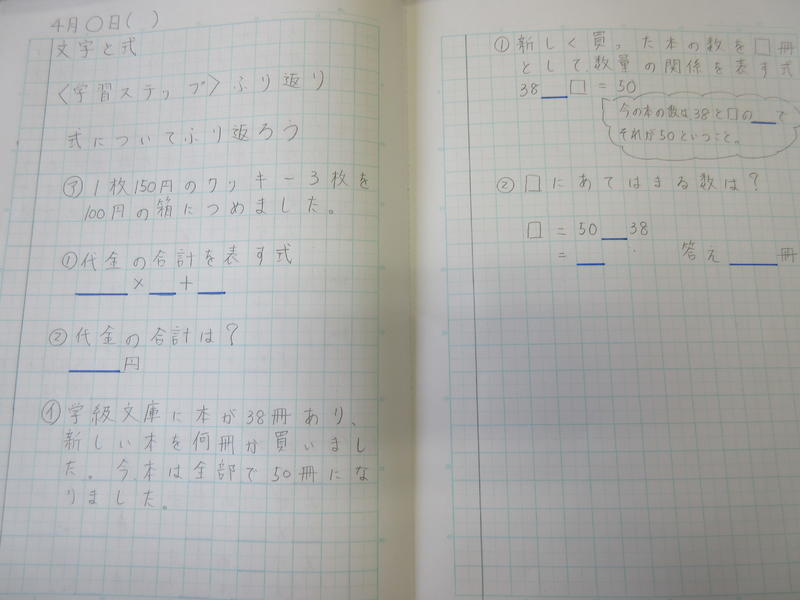 4月〇日( )
文字と式
〈学習ステップ〉ふり返り
式についてふり返ろう
㋐ 1枚150円のクッキー3枚を
100円の箱につめました。
①代金の合計を表す式
___×___+___
②代金の合計は？
___円
㋑ 学級文庫に本が38冊あり、
新しい本を何冊か買いまし
た。今、本は全部で50冊にな
りました。
① 新しく買った本の数を□冊
として、数量の関係を表す式
38___□=50
今の本の数は38と□の___で
それが50ということ。
② □にあてはまる数は？
□=50___38
=___ 答え ___冊